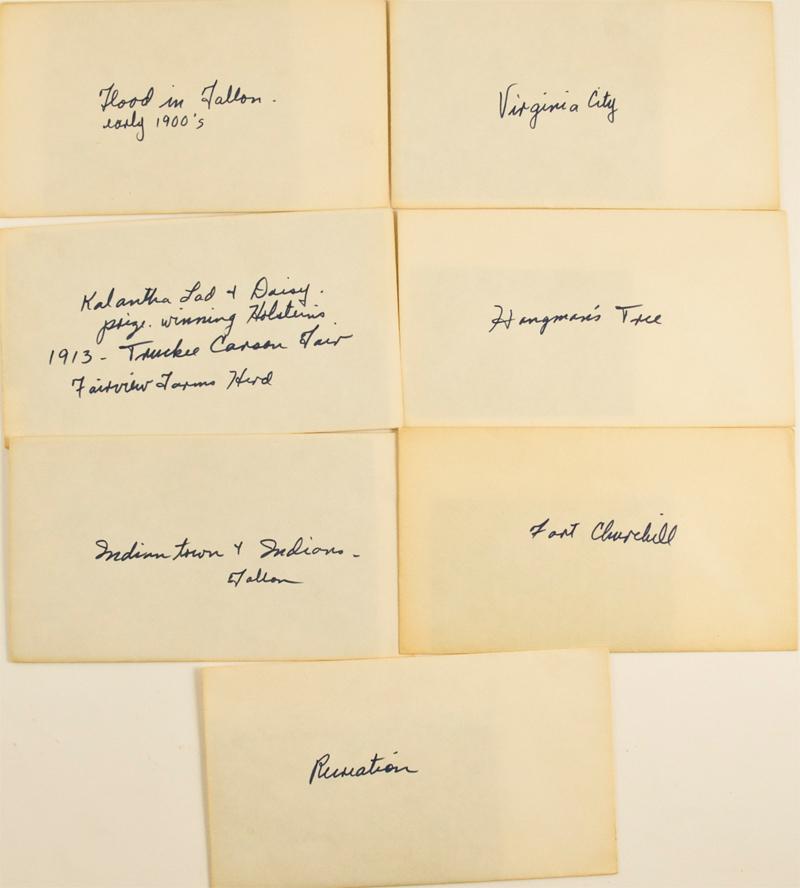 Flood in Fallon.
early 1900's
Virginia City
Kalantha Lad & Daisy.
prize. winning Holsteins
1913 - Truckee Carson Fair
Fairview Farms Herd
Hangman's Tree
Indian town & Indians -
Fallon
Fort Churchill
Recreation